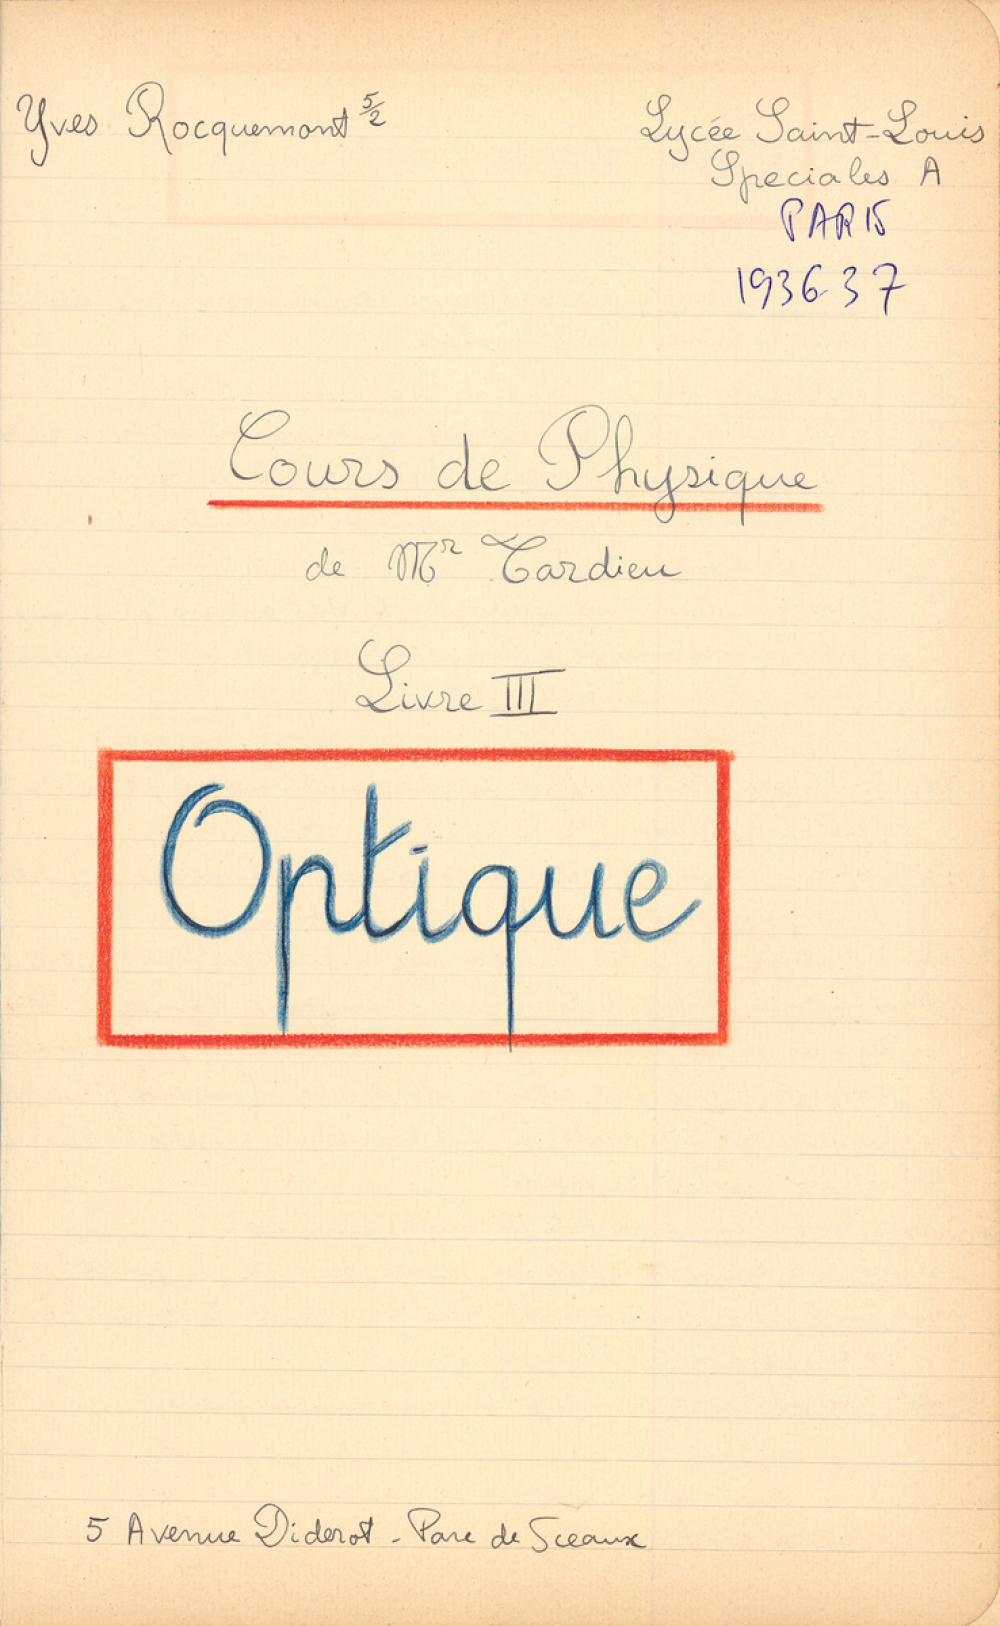 Yves Rocquemont 5/2
Lycée Saint-Louis
Speciales A
PARIS
1936-37
Cours de Physique
de Mr Tardieu
Livre III
Optique
5 Avenue Diderot - Parc de Sceaux